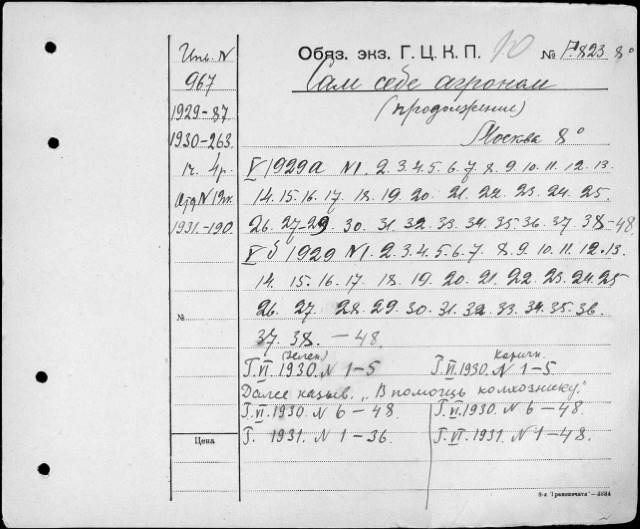 Инв. N
967
1929-87.
1930-263.
1 ч. 4 р.
Отд N 19ж.
1931.-190.
№
Цена
Обяз. экз. Г. Ц. К. П. 10 № F.823 8°
Сам себе агроном
(продолжение)
Москва 8°
V 1929 а N 1. 2. 3. 4. 5. 6. 7. 8. 9. 10. 11. 12. 13.
14. 15. 16. 17. 18. 19. 20. 21. 22. 23. 24. 25.
26. 27-29. 30. 31. 32. 33. 34. 35. 36. 37. 38-48.
V б 1929 N 1. 2. 3. 4. 5. 6. 7. 8. 9. 10. 11. 12. 13.
14. 15. 16. 17. 18. 19. 20. 21. 22. 23. 24. 25
26. 27. 28. 29. 30. 31. 32. 33. 34. 35. 36.
37. 38. - 48.
(Зелен.) Коричн.
Г. VI. 1930. N 1-5 Г. VI. 1930. N 1-5
Далее назыв. „В помощь колхознику."
Г. VI. 1930. N 6-48. Г. VI. 1930. N 6-48.
Г. 1931. N 1-36. Г. VI. 1931. N 1-48.